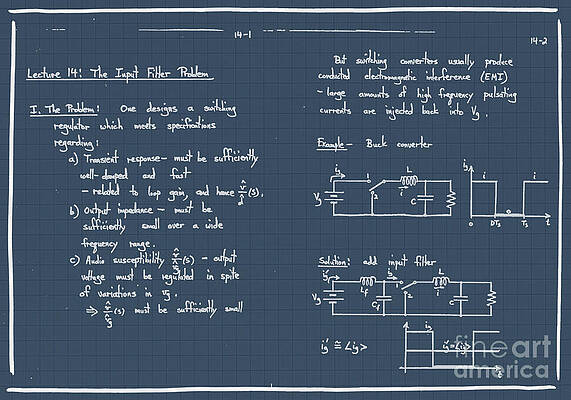 14-1
Lecture 14: The Input Filter Problem
I. The Problem: One designs a switching
regulator which meets specifications
regarding:
a) Transient response - must be sufficiently
well-damped and fast
- related to loop gain, and hence v̂/d̂ (s).
b) Output impedance - must be
sufficiently small over a wide
frequency range.
c) Audio susceptibility v̂/v̂g (s) - output
voltage must be regulated in spite
of variations in vg.
⇒ v̂/v̂g (s) must be sufficiently small
14-2
But switching converters usually produce
conducted electromagnetic interference (EMI)
- large amounts of high frequency pulsating
currents are injected back into Vg.
Example - Buck converter
ig 1 L
Vg 2 i C
ig
i i
0
0 DTs Ts t
Solution: add input filter
ig' ig L
Vg Lf Cf 1 2 i C
ig
ig' ≅ <ig>
ig'=<ig>
fine art
america